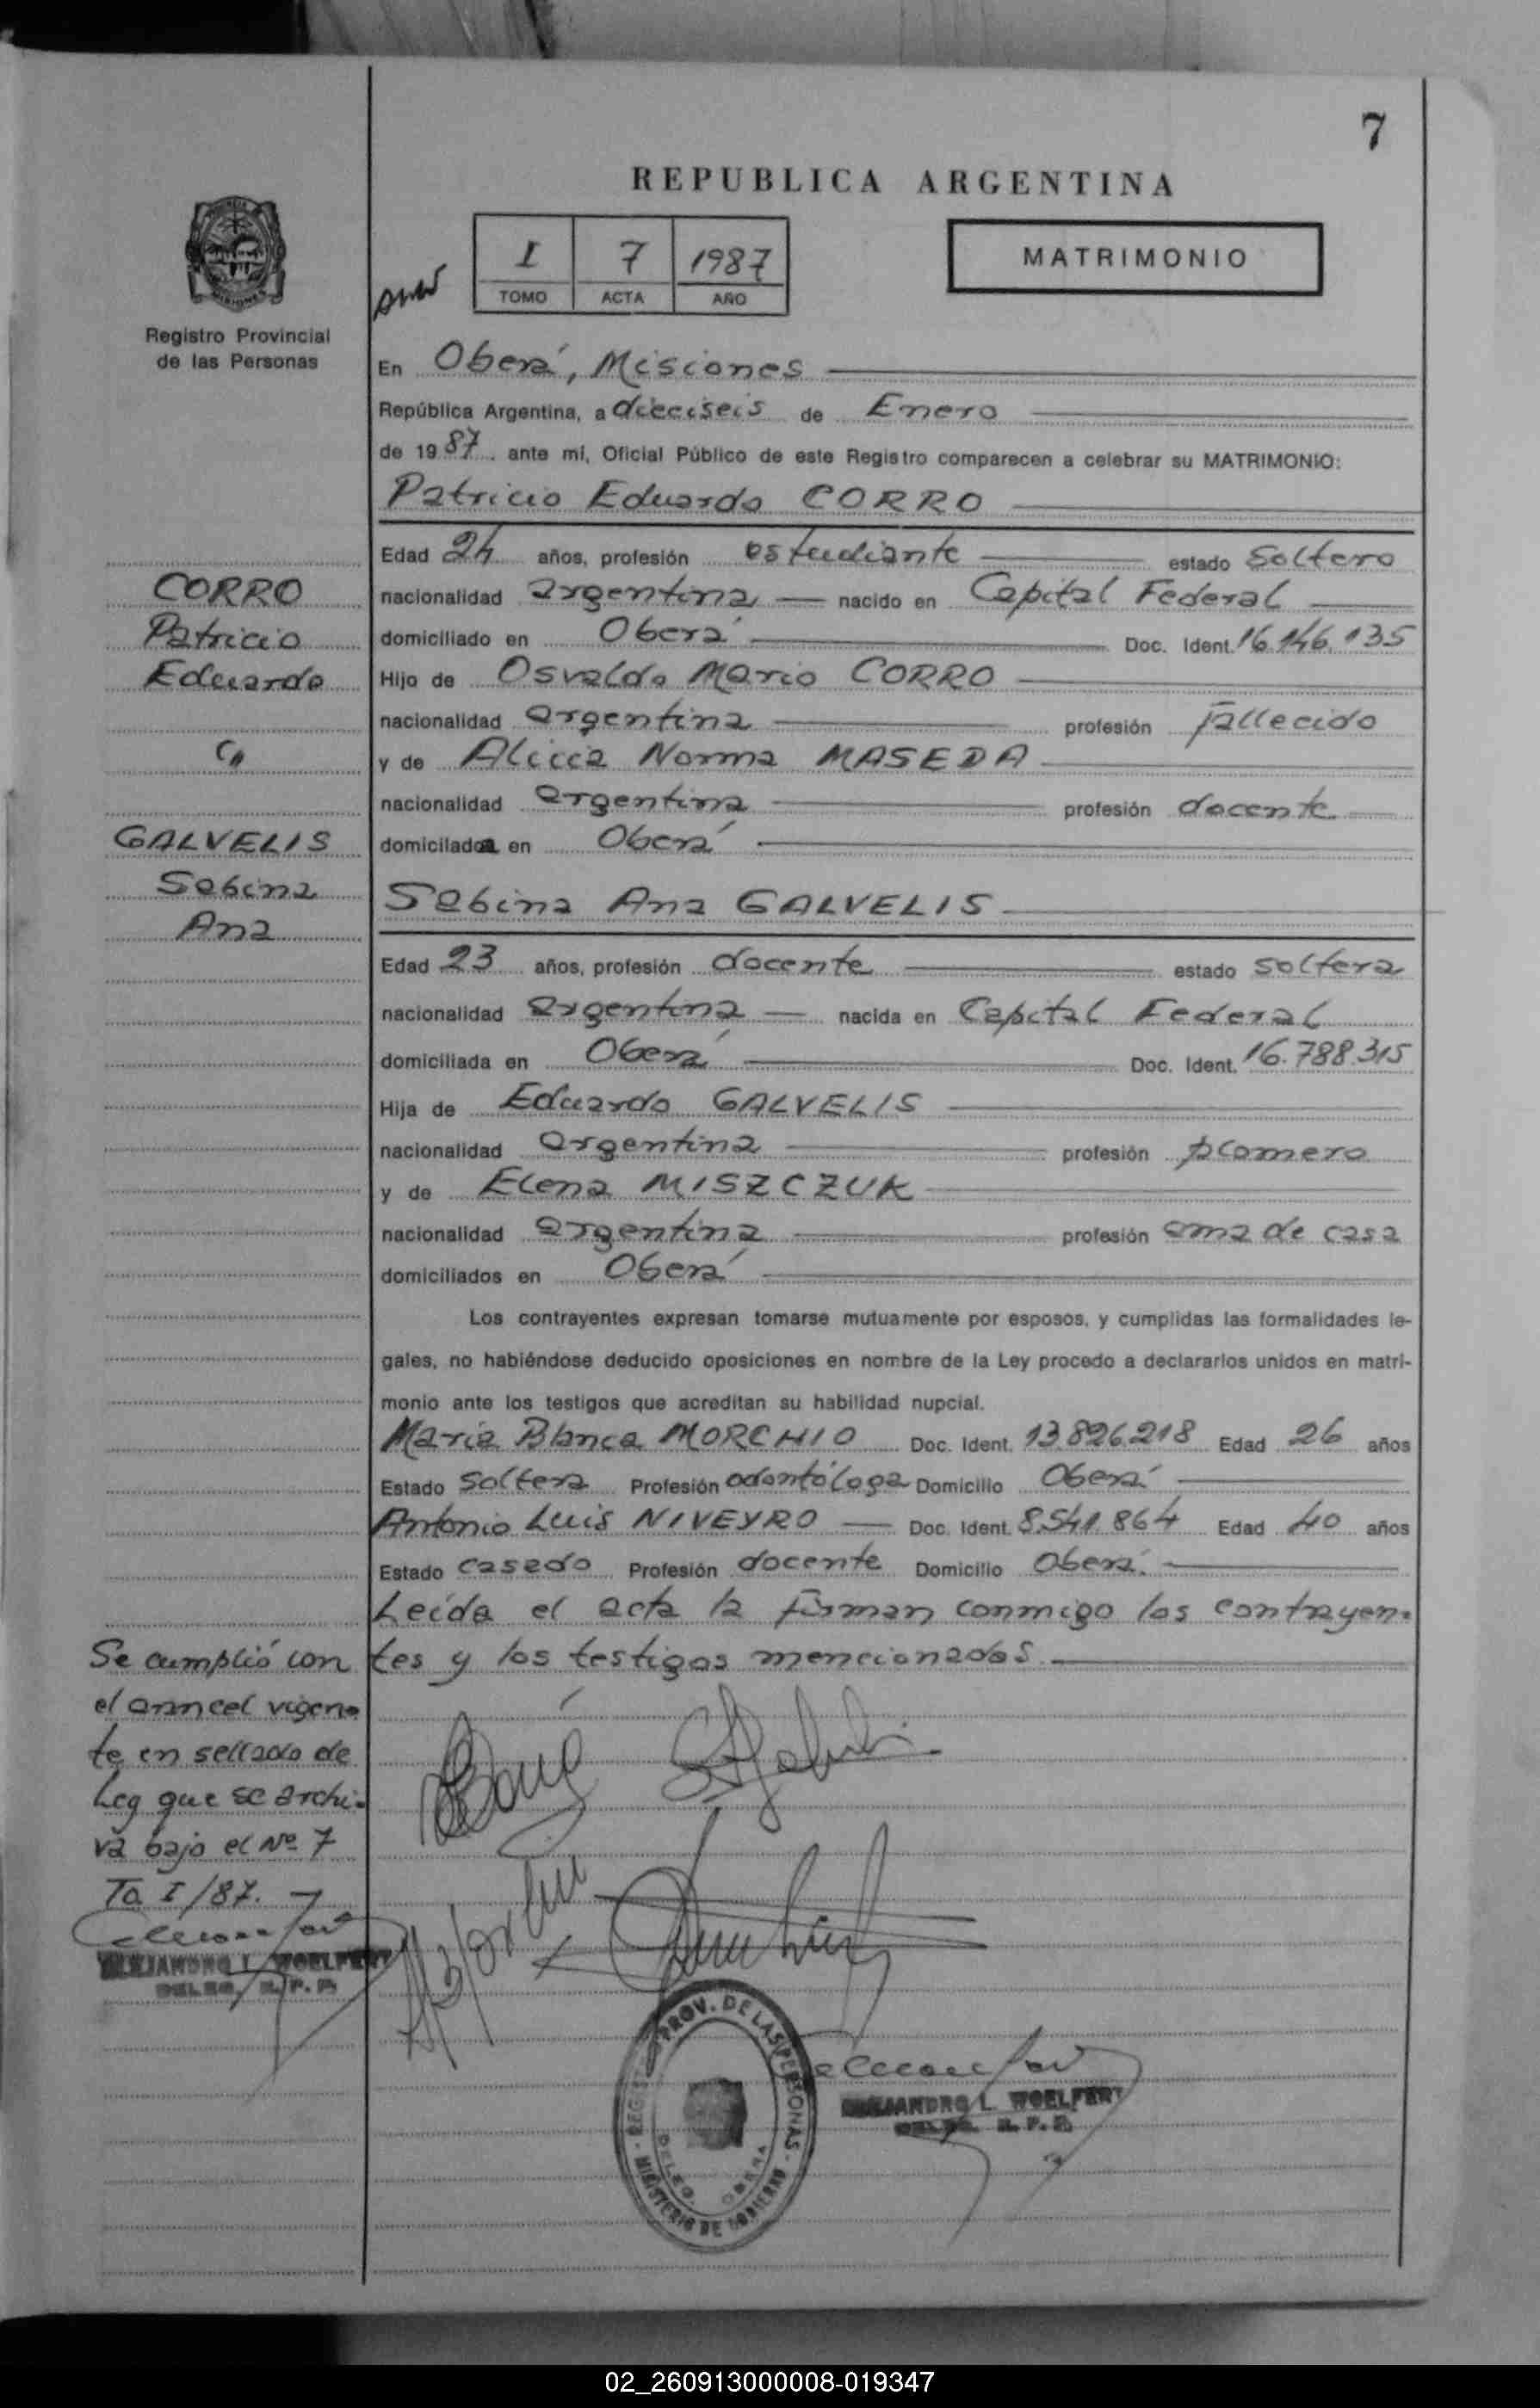 7
REPUBLICA ARGENTINA
I 7 1987
TOMO ACTA AÑO
MATRIMONIO
Registro Provincial
de las Personas
En Oberá, Misiones
República Argentina, a dieciseis de Enero
de 1987. ante mí, Oficial Público de este Registro comparecen a celebrar su MATRIMONIO:
Patricio Eduardo CORRO
Edad 24 años, profesión estudiante estado soltero
nacionalidad argentina nacido en Capital Federal
domiciliado en Oberá Doc. Ident. 16.146.135
Hijo de Osvaldo Mario CORRO
nacionalidad argentina profesión fallecido
y de Alicia Norma MASEDA
nacionalidad argentina profesión docente
domicilada en Oberá
CORRO
Patricio
Eduardo
c/
GALVELIS
Sabina
Ana
Sabina Ana GALVELIS
Edad 23 años, profesión docente estado soltera
nacionalidad argentina nacida en Capital Federal
domiciliada en Oberá Doc. Ident. 16.788.315
Hija de Eduardo GALVELIS
nacionalidad argentina profesión plomero
y de Elena MISZCZUK
nacionalidad argentina profesión ama de casa
domiciliados en Oberá
Los contrayentes expresan tomarse mutuamente por esposos, y cumplidas las formalidades le-
gales, no habiéndose deducido oposiciones en nombre de la Ley procedo a declararlos unidos en matri-
monio ante los testigos que acreditan su habilidad nupcial.
María Blanca MORCHIO Doc. Ident. 13.826.218 Edad 26 años
Estado soltera Profesión odontóloga Domicilio Oberá
Antonio Luis NIVEYRO Doc. Ident. 8.541.864 Edad 40 años
Estado casado Profesión docente Domicilio Oberá.
Leída el acta la firman conmigo los contrayen-
tes y los testigos mencionados
Se cumplió con
el arancel vigen-
te en sellado de
Ley que se archi-
va bajo el Nº 7
To I/87.
ALEJANDRO L. WOELFERT
DELEG. R. P. P.
REGISTRO PROV. DE LAS PERSONAS - MINISTERIO DE GOBIERNO -
DELEG. OBERA
ALEJANDRO L. WOELFERT
DELEG. R. P. P.
02_260913000008-019347